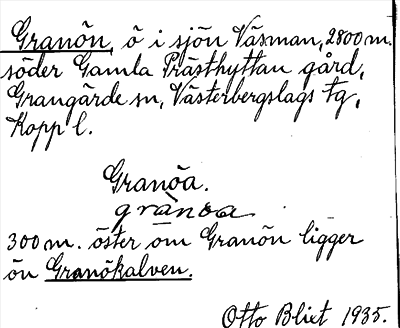 Granön, ö i sjön Väsman, 2800 m.
söder Gamla Prästhyttan gård,
Grangärde sn, Västerbergslags tg,
Kopp l.
Granöa.
grànöa
300 m. öster om Granön ligger
ön Granökalven.
Otto Blixt 1935.